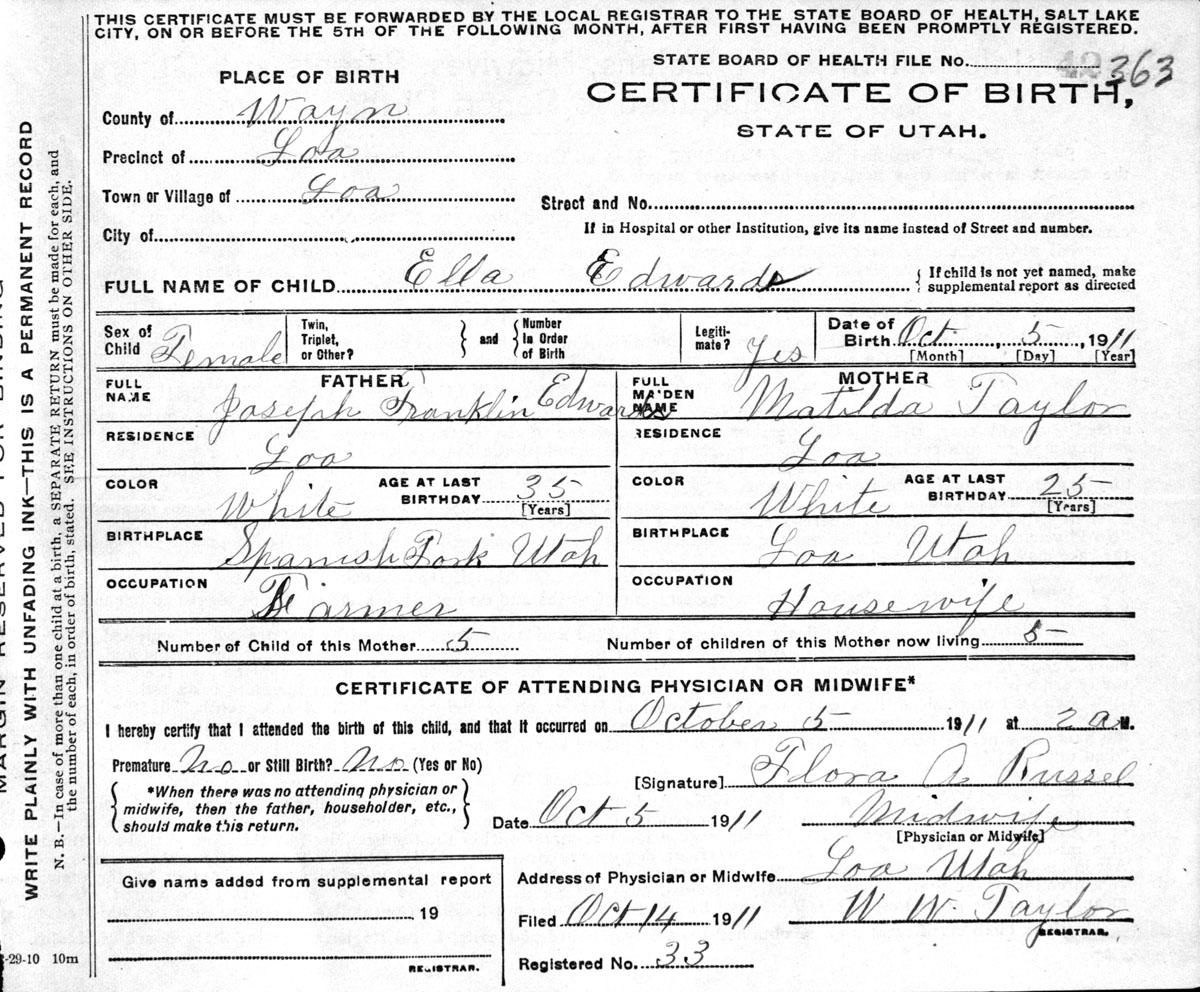 THIS CERTIFICATE MUST BE FORWARDED BY THE LOCAL REGISTRAR TO THE STATE BOARD OF HEALTH, SALT LAKE
CITY, ON OR BEFORE THE 5TH OF THE FOLLOWING MONTH, AFTER FIRST HAVING BEEN PROMPTLY REGISTERED.
STATE BOARD OF HEALTH FILE No. 42 363
PLACE OF BIRTH
CERTIFICATE OF BIRTH,
STATE OF UTAH.
County of Wayn
Precinct of Loa
Town or Village of Loa
Street and No.
City of
If in Hospital or other Institution, give its name instead of Street and number.
FULL NAME OF CHILD Ella Edwards { If child is not yet named, make
supplemental report as directed
Sex of Child Female
Twin, Triplet, or Other? } and { Number in Order of Birth
Legiti-mate? Yes
Date of Birth Oct 5, 1911
[Month] [Day] [Year]
FATHER
FULL NAME Joseph Franklin Edwards
RESIDENCE Loa
COLOR White AGE AT LAST BIRTHDAY 35 [Years]
BIRTHPLACE Spanish Fork Utah
OCCUPATION Farmer
MOTHER
FULL MAIDEN NAME Matilda Taylor
RESIDENCE Loa
COLOR White AGE AT LAST BIRTHDAY 25 [Years]
BIRTHPLACE Loa Utah
OCCUPATION Housewife
Number of Child of this Mother 5 Number of children of this Mother now living 5
CERTIFICATE OF ATTENDING PHYSICIAN OR MIDWIFE*
I hereby certify that I attended the birth of this child, and that it occurred on October 5 1911 at 2 a M.
Premature No or Still Birth? No (Yes or No)
[Signature] Flora A Russel
{ *When there was no attending physician or
midwife, then the father, householder, etc.,
should make this return. }
Date Oct 5 1911 Midwife
[Physician or Midwife]
Address of Physician or Midwife Loa Utah
Filed Oct 14 1911 W W Taylor
REGISTRAR.
Registered No. 33
Give name added from supplemental report
19
REGISTRAR.
-29-10 10m
MARGIN RESERVED FOR BINDING
WRITE PLAINLY WITH UNFADING INK—THIS IS A PERMANENT RECORD
N. B.—In case of more than one child at a birth, a SEPARATE RETURN must be made for each, and
the number of each, in order of birth, stated. SEE INSTRUCTIONS ON OTHER SIDE.